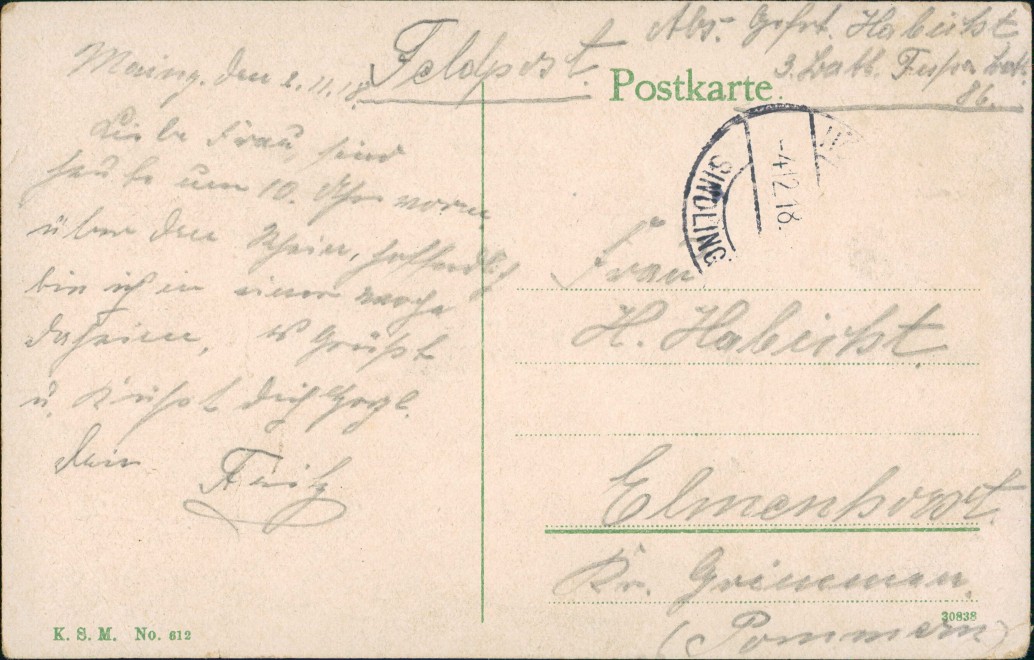 Feldpost
Abs. Gefrt. Habicht
3. Batt. Fussa. Bat.
86.
Postkarte
SINDLING
-4.12.18.
Mainz, den 2.11.18.
Liebe Frau, sind
heute um 10 Uhr vorm
über den Rhein, hoffendlich
bin ich in einer woche
daheim, es Grüßt
u. Küßt dich Herzl.
dein
Fritz
Frau
H. Habicht
Elmenhorst
Kr. Grimmen
(Pommern)
K. S. M. No. 612
30838